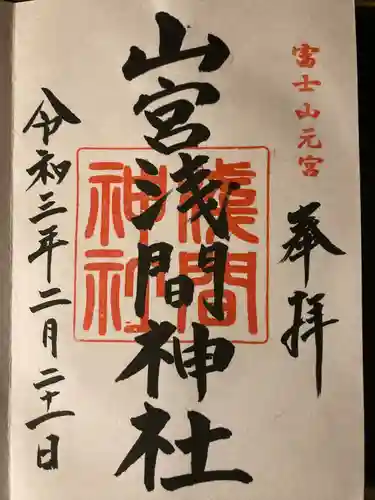 富士山元宮
奉拝
山宮浅間神社
浅間神社
令和三年二月二十一日